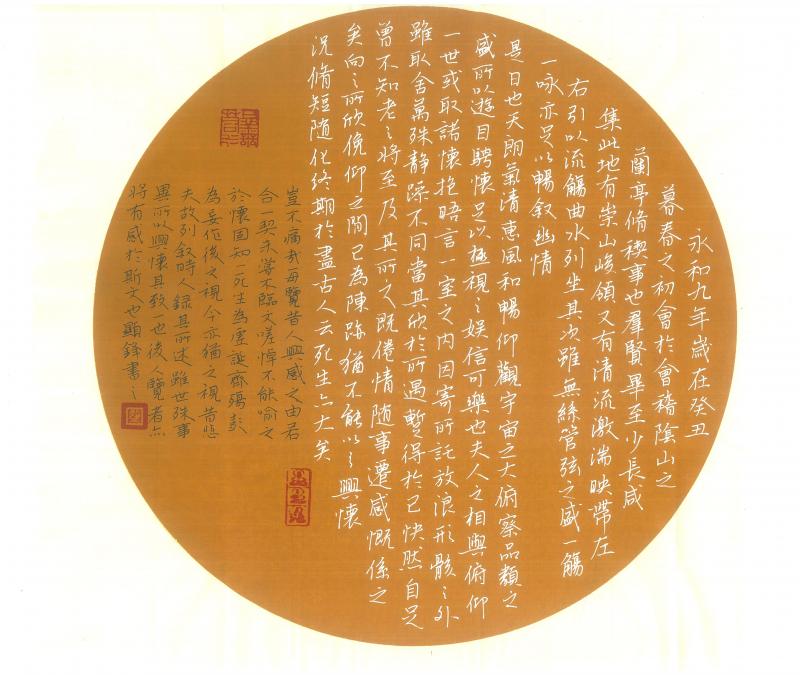 永和九年歲在癸丑
暮春之初會於會稽隂山之
蘭亭脩稧事也羣賢畢至少長咸
集此地有崇山峻領又有清流激湍映帶左
右引以流觴曲水列坐其次雖無絲管弦之盛一觴
一咏亦足以暢叙幽情
是日也天朗氣清惠風和暢仰觀宇宙之大俯察品類之
盛所以遊目騁懷足以極視々娱信可樂也夫人之相與俯仰
一世或取諸懷抱晤言一室之内因寄所託放浪形骸々外
雖取舍萬殊静躁不同當其欣於所遇暫得於己快然自足
曾不知老々將至及其所之既倦情随事遷感慨係之
矣向々所欣俛仰之間已為陳跡猶不能以々興懷
況脩短随化終期於盡古人云死生亦大矣
豈不痛哉每覽昔人興感之由若
合一契未甞不臨文嗟悼不能喻之
於懷固知一死生為虛誕齊殤彭
為妄作後之視今亦猶之視昔悲
夫故列叙時人錄其所述雖世殊事
異所以興懷其致一也後人覽者亦
將有感於斯文也顯鋒書之